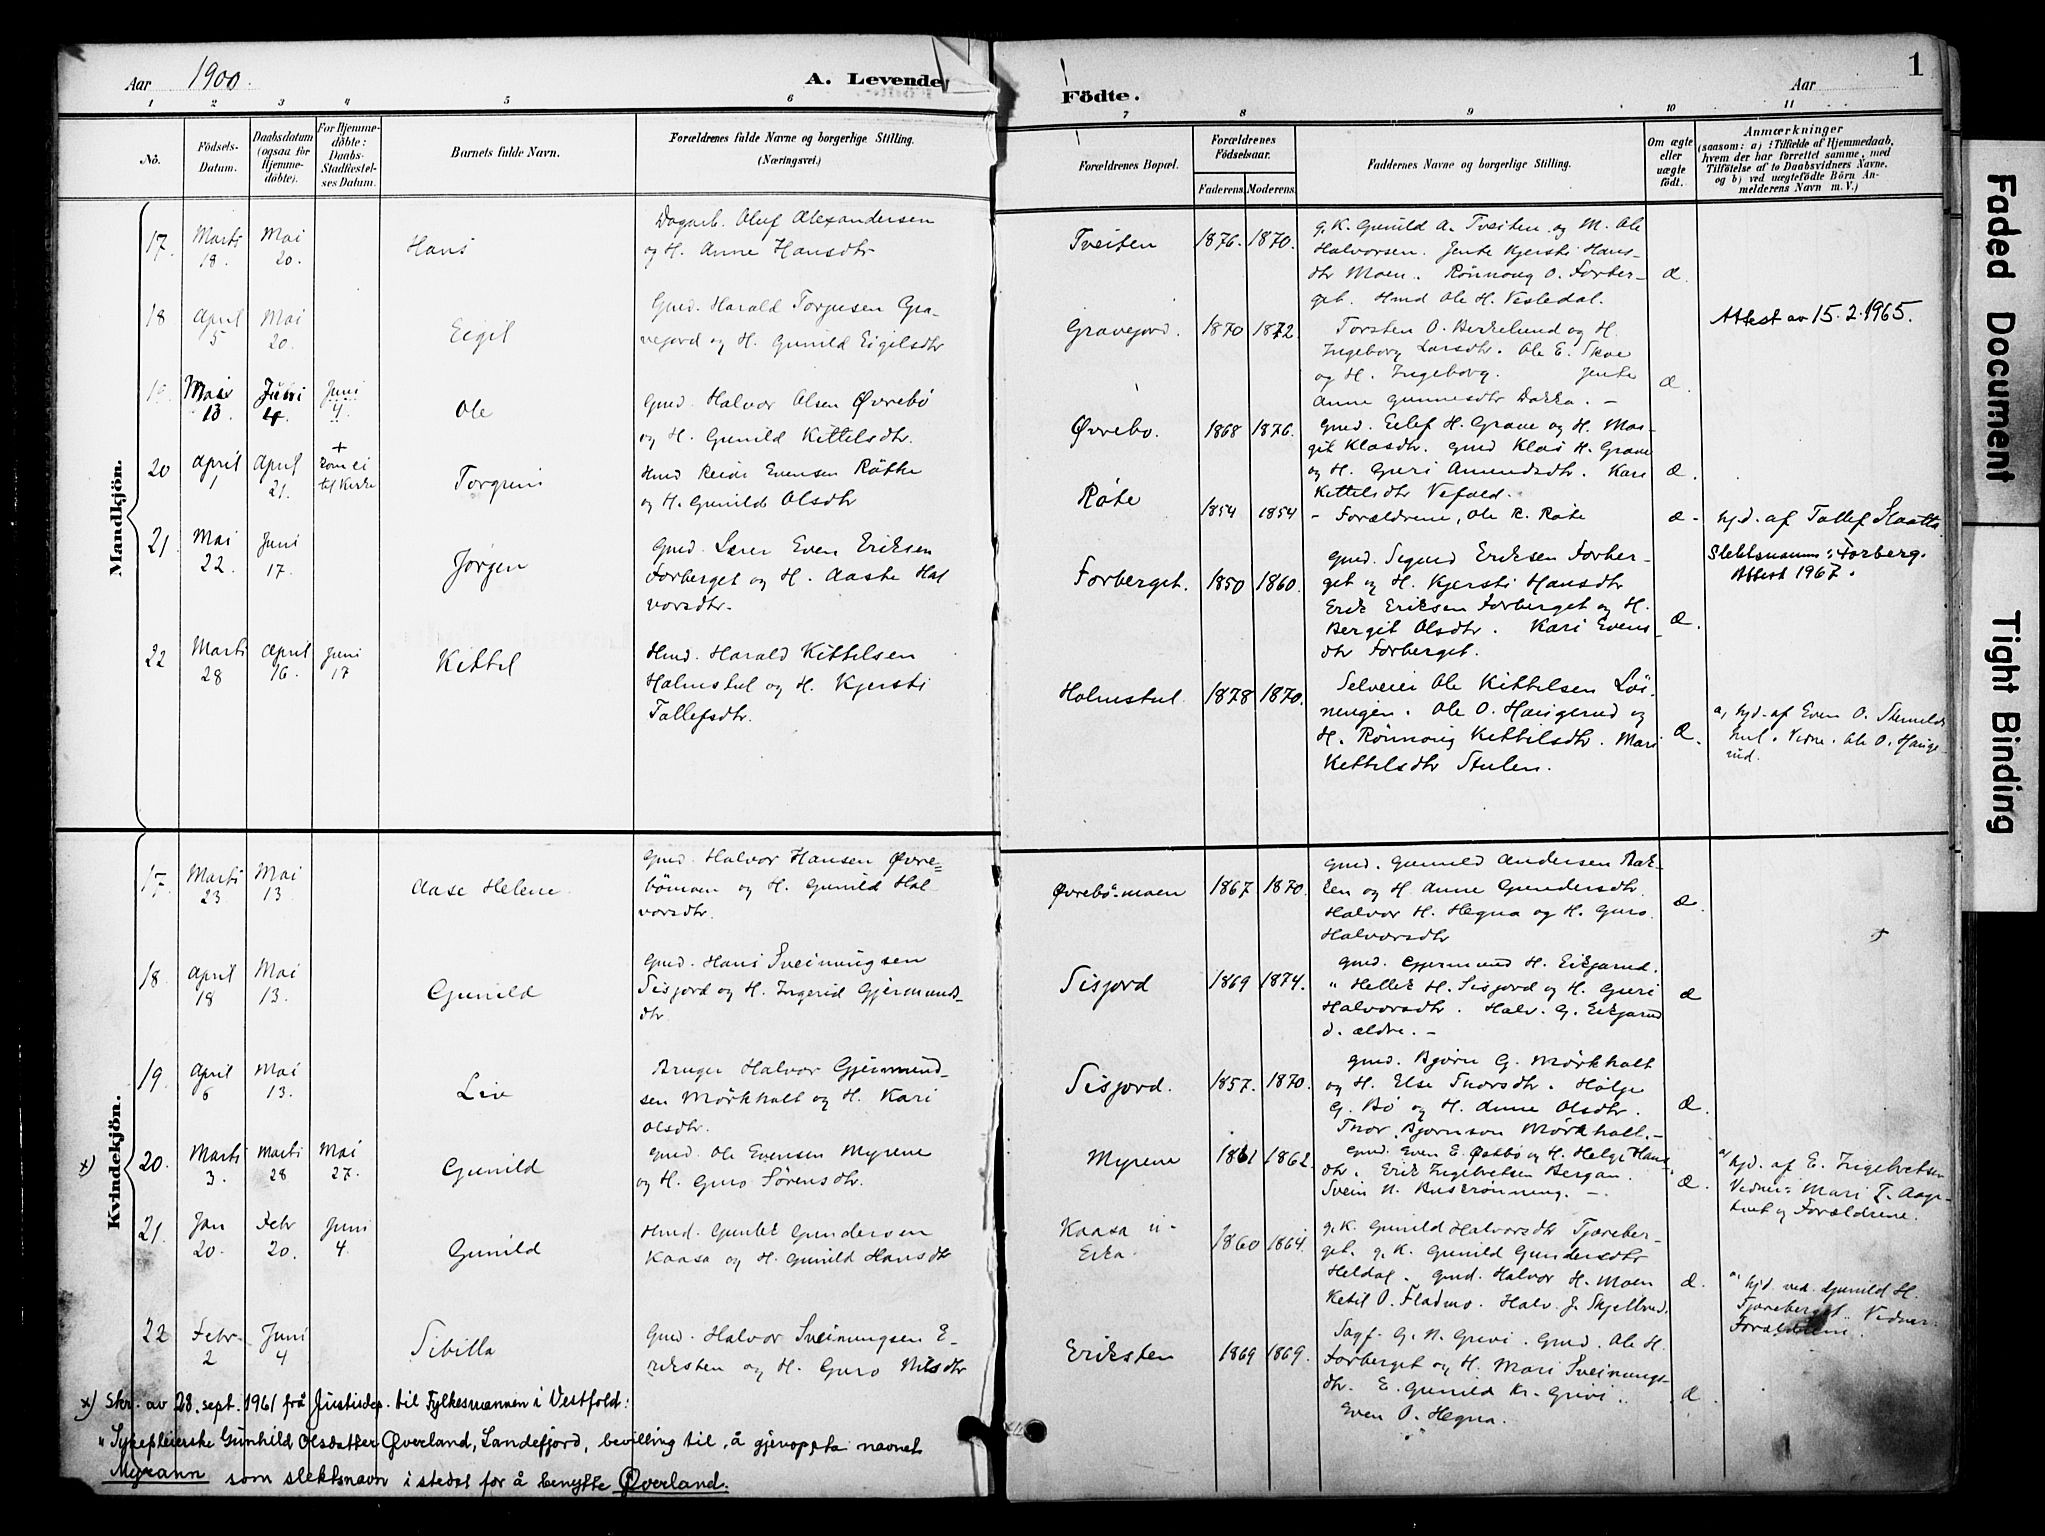 Aar 1900.
A. Levende
Födte.
Aar
1
1 2 3 4 5 6 7 8 9 10 11
No.
Födsels-
Datum.
Daabsdatum
(ogsaa för
Hjemme-
döbte).
For Hjemme-
döbte:
Daabs-
Stadfæstel-
ses Datum.
Barnets fulde Navn.
Forældrenes fulde Navne og borgerlige Stilling.
(Næringsvei.)
Forældrenes Bopæl.
Forældrenes
Födselsaar.
Faderens. Moderens.
Faddernes Navne og borgerlige Stilling.
Om ægte
eller
uægte
födt.
Anmærkninger
(saasom: a) i Tilfælde af Hjemmedaab,
hvem der har forrettet samme, med
Tilföielse af to Daabsvidners Navne,
og b) ved uægtefödte Börn An-
melderens Navn m. V.)
Mandkjön.
17. Marts 18. Mai 20. Hans
Dagarb. Oluf Alexandersen
og H. Anne Hansdtr
Tveiten 1876. 1870.
g. K. Gunild A. Tveiten og M. Ole
Halvorsen. Jente Kjersti Hans-
dtr Moen. Rönnoug O. Forber-
get. Hmd Ole H. Vesledal.
Æ.
18 April 5 Mai 20. Eigil
Gmd. Harald Torjusen Gra-
vejord og H. Gunild Eigilsdtr
Gravejord. 1870 1872.
Torsten O. Birkelund og H.
Ingeborg Larsdtr. Ole E. Skoe
og H. Ingeborg. Jente
Anne Gunnesdtr Dokka. –
Æ.
Attest av 15.2.1965.
19. Mai 13 Juni 4. Juni 4. Ole
Gmd. Halvor Olsen Øvrebø
og H. Gunild Kittelsdtr.
Øvrebø. 1868 1876.
Gmd. Eilef H. Grave og H. Mar-
git Klasdtr. Gmd Klas H. Grave
og H. Guri Amundsdtr. Kari
Kittilsdtr Vefald.
Æ.
20 April 1 April 21. + kom ei til Kirke Torgrim
Hmd Reidr Evensen Røthe
og H. Gunild Olsdtr
Røte 1854 1854
– Forældrene, Ole R. Røte
Æ. hjd. af Tallef Slaatta
21. Mai 22. Juni 17. Jørgen
Gmd. Lærer Even Eriksen
Forberget og H. Aaste Hal
vorsdtr.
Forberget. 1850 1860.
Gmd. Sigurd Eriksen Forber-
get og H. Kjersti Hansdtr
Erik Eriksen Forberget og H.
Bergit Olsdtr. Kari Evens-
dtr Forberget.
Æ.
Slektsnavn: Forberg.
Attest 1967.
22 Marts 28 April 16. Juni 17 Kittel
Hmd. Harald Kittelsen
Holmstul og H. Kjersti
Tallefsdtr.
Holmstul. 1878 1870.
Selveier Ole Kittelsen Löi-
ningen. Ole O. Haugerud og
H. Rönnoug Kittilsdtr. Mari
Kittilsdtr Stulen.
Æ.
a, hjd. af Even O. Stenulds
hul. Vidne. Ole O. Hauge-
rud.
Kvindekjön.
17. Marts 23. Mai 13 Aase Helene.
Gmd. Halvor Hansen Øvre-
bömoen og H. Gunild Hal
vorsdtr.
Øvrebö-moen 1867 1870.
Gmd. Gunuld Andersen Bak-
ken og H. Anne Gundersdtr.
Halvor H. Hegna og H. Guro
Halvorsdtr
Æ.
18. April 18 Mai 13. Gunild
Gmd. Hans Sveinungsen
Sisjord og H. Ingerid Gjermunds-
dtr.
Sisjord 1869 1874.
Gmd. Gjermund H. Eikjarud.
" Hellek H. Sisjord og H. Guri
Halvorsdtr. Halv. G. Eikjarud
d. ældre. –
Æ
19. April 6 Mai 13. Liv
Bruger Halvor Gjermund-
sen Mörkholt og H. Kari
Olsdtr.
Sisjord. 1857. 1870.
Gmd. Bjørn G. Mörkholt
og H. Else Thorsdtr. Helge
G. Bö og H. Anne Olsdtr.
Thor Bjørnson Mörkholt. –
Æ.
x) 20. Marts 3. Marts 28 Mai 27. Gunild
Gmd. Ole Evensen Myrene
og H. Guro Sörensdtr.
Myrene 1861 1862.
Gmd. Even E. Østbø og H. Helge Hans-
dtr. Erik Ingebretsen Bergan.
Svein N. Buskrönning. –
Æ.
a, hjd. af E. Ingebretsen
Vidner: Mari T. Aage-
tveit og Forældrene.
21. Jan 20. Febr 20. Juni 4. Gunild
Hmd. Gunlek Gundersen
Kaasa og H. Gunild Hansdtr
Kaasa u.
Eika. 1860 1864.
g. K. Gunild Halvorsdtr Tjøreber-
get. g. K. Gunild Gundersdtr
Heldal. Gmd. Halvor H. Moen
Ketil O. Fladmo. Halv. J. Skjelbred.
Æ.
a, hjd. ved. Gunild H.
Tjøreberget. Vidner.
Forældrene.
22 Febr. 2 Juni 4 Sibilla
Gmd. Halvor Sveinungsen E-
riksten og H. Guro Nilsdtr
Eriksten 1869 1869.
Sagf. G. N. Grivi. Gmd. Ole H.
Forberget og H. Mari Sveinungs-
dtr. E. Gunild Kr. Grivi.
Even O. Hegna.
Æ.
x) Skr. av 28. sept. 1961 frå Justisdep. til Fylkesmannen i Vestfold:
"Sykepleierske Gunhild Olsdatter Øverland, Sandefjord, bevilling til å gjenoppta navnet
Myrann som slektsnavn i stedet for å benytte Øverland.
Faded Document
Tight Binding